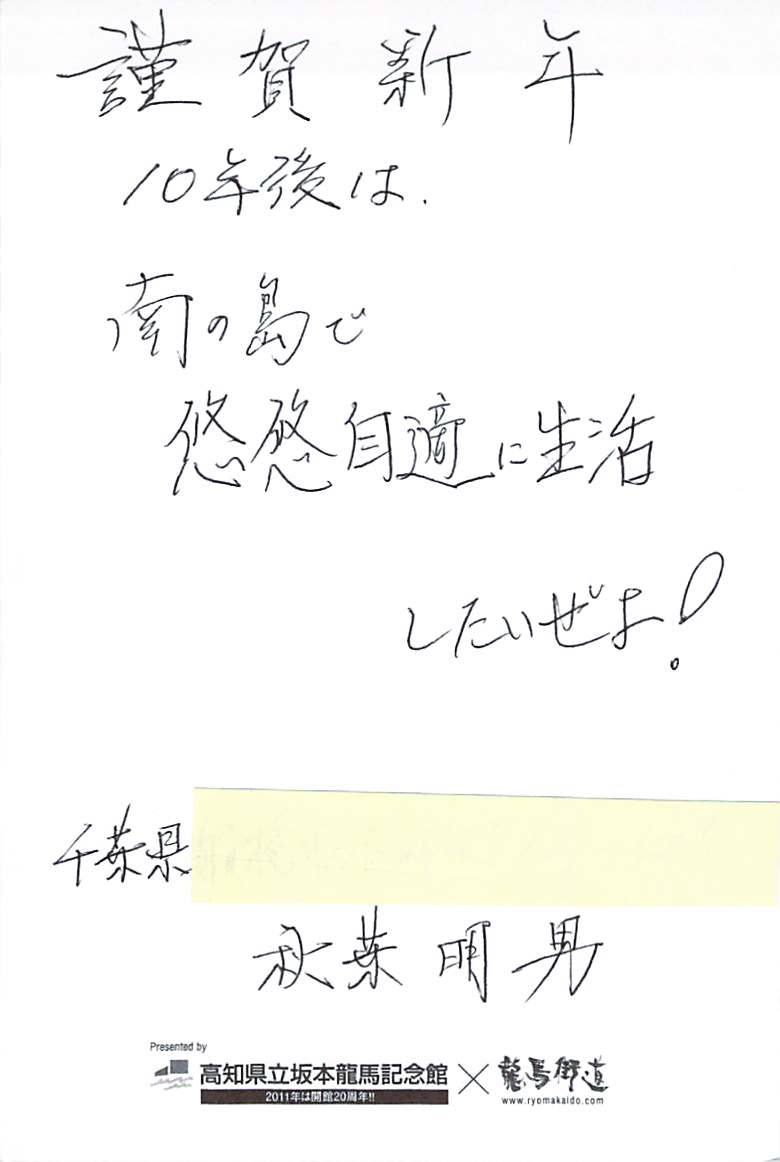 謹賀新年
10年後は.
南の島で
悠悠自適に生活
したいぜよ!
千葉県
秋葉明男
Presented by
高知県立坂本龍馬記念館 × 龍馬街道
2011年は開館20周年!!
www.ryomakaido.com